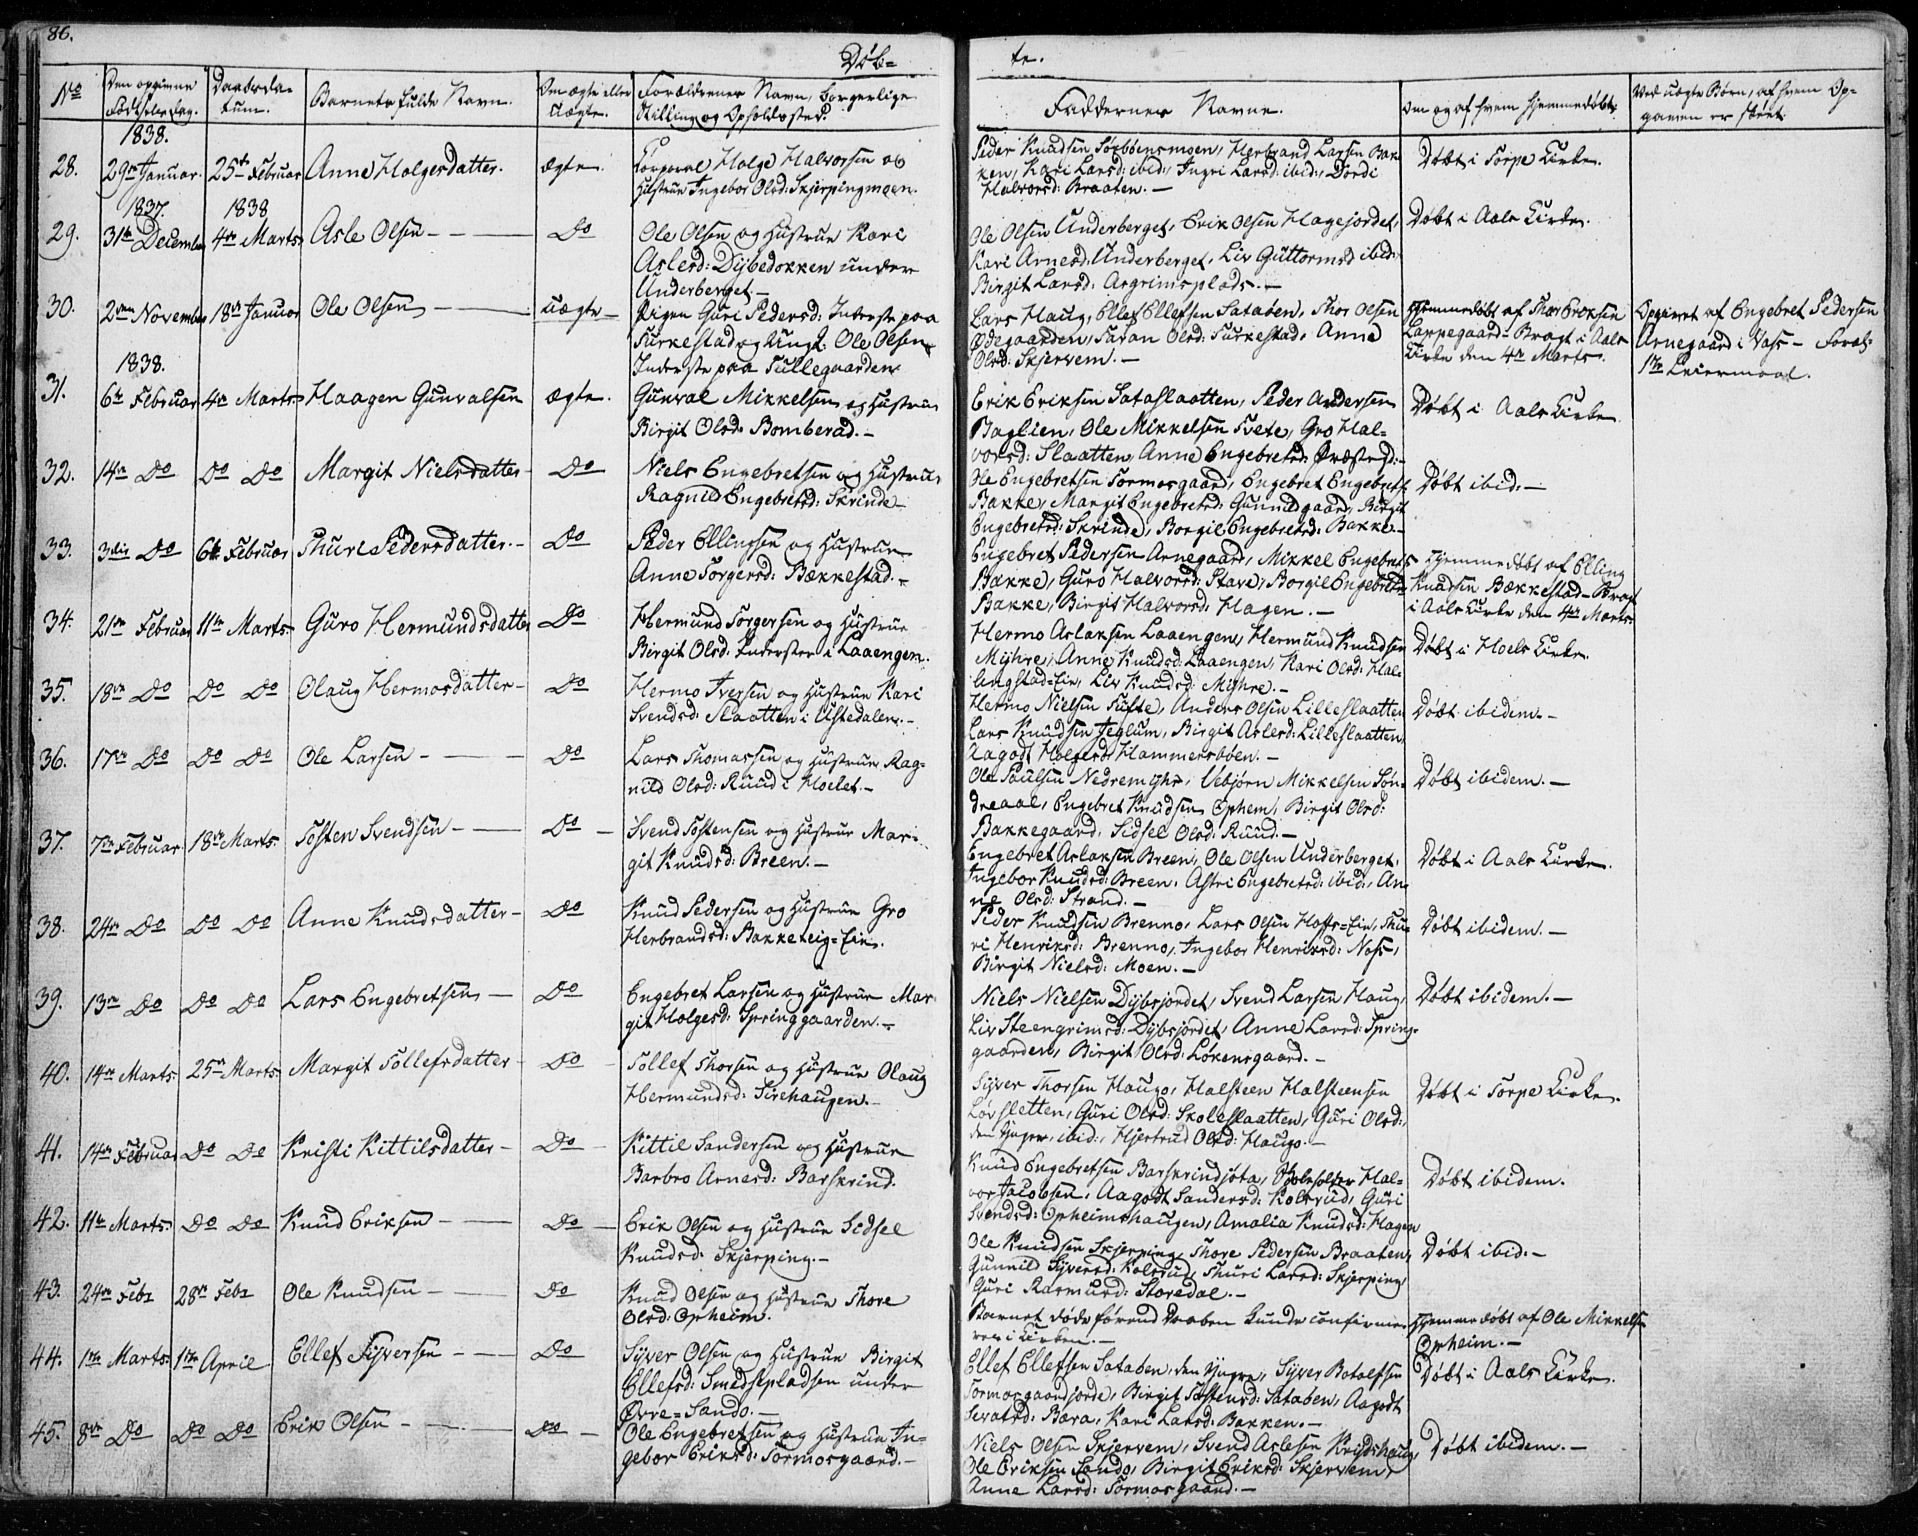 86.
Døb=
te.
No
Den opgivne Fødselsdag.
Daabsda-
tum.
Barnets fulde Navn.
Om ægte eller
uægte.
Forældrenes Navn, borgerlige
Stilling og Opholdssted.
Faddernes Navne.
Om og af hvem hjemmedøbt.
Ved uægte Børn, af hvem Op-
gaven er skeet.
1838.
28.
29de Januar.
25de Februar
Anne Holgersdatter.
ægte.
Corporal Holge Halvorsen og
Hustrue Ingebor Olsd: Skjerpingmoen.
Peder Knudsen Torsbensmoen, Herbrand Larsen Bak-
ken, Kari Larsd: ibid:, Ingri Larsd: ibid:, Dordi
Halvorsd: Braaten.-
Døbt i Torpe Kirke.
1837.
1838
29.
31te December
4de Marts
Asle Olsen
Do
Ole Olsen og Hustrue Kari
Aslesd: Dybedokken under
Underberget.-
Ole Olsen Underberget, Erik Olsen Hagejordet,
Kari Arnesd: Underberget, Liv Guttormsd ibid:
Birgit Larsd: Asgrimsplads.-
Døbt i Aals Kirke.
30.
2den November
18de Januar
Ole Olsen
uægte
Pigen Guri Pedersd: Inderste paa
Turkestad og Ungk. Ole Olsen
Inderste paa Tullegaarden
Lars Haug, Ellef Ellefsen Sataben, Thor Olsen
Ødegaarden, Taran Olsd: Turkestad, Anne
Olsd: Skjervem.-
Hjemmedøbt af Thor Eriksen
Lappegaard - Bragt i Aals
Kirke den 4de Marts.
Opgivet af Engebret Pedersen
Arnegaard i Vass - Foræl:
1ste Leiermaal.
1838.
31.
6te Februar
4de Marts
Haagen Gunvalsen
ægte.
Gunval Mikkelsen og Hustrue
Birgit Olsd: Bomberad.-
Erik Eriksen Sataslaatten, Peder Andersen
Baglien, Ole Mikkelsen Tvete, Gro Hal-
vorsd: Slaatten, Anne Engebretsd: Præstegd:-
Døbt i Aals Kirke
32.
14de Do
Do Do
Margit Nielsdatter
Do
Niels Engebretsen og Hustrue
Ragnild Engebretsd: Skrinde-
Ole Engebretsen Tormosgaard, Engebret Engebrets:
Bakke, Margit Engebretsd: Gunnildgaard, Birgit
Engebretsd: Skrinde, Borgil Engebretsd: Bakke.-
Døbt ibid:-
33.
3die Do
6te Februar
Thuri Pedersdatter.
Do
Peder Ellingsen og Hustrue
Anne Torgersd: Bækkestad.-
Engebret Pedersen Arnegaard, Mikkel Engebrets:
Bakke, Guro Halvorsd: Stave, Borgil Engebretsd:
Bakke, Birgit Halvorsd: Hagen.-
Hjemmedøbt af Elling
Knudsen Bækkestad - Bragt
i Aals Kirke den 4de Marts.
34.
21de Februar
11te Marts
Guro Hermundsdatter
Do
Hermund Torgersen og Hustrue
Birgit Olsd: Inderster i Laaengen.
Hermo Aslaksen Laaengen, Hermund Knudsen
Myhre, Anne Knudsd: Laaengen, Kari Olsd: Hal-
lingstad=Eie, Liv Knudsd: Myhre.-
Døbt i Hoels Kirke.
35.
18de Do
Do Do
Olaug Hermosdatter
Do
Hermo Iversen og Hustrue Kari
Svendsd: Slaatten i Ustedalen.-
Hermo Nielsen Tufte, Anders Olsen Lilleslaatten
Lars Knudsen Jeglum, Birgit Aslesd: Lilleslaatten,
Aagodt Holgersd: Hammersbøen.-
Døbt ibidem.-
36.
17de Do
Do Do
Ole Larsen
Do
Lars Thomassen og Hustrue Rag-
nild Olsd: Ruud i Hoelet.-
Ole Paulsen Nedremyhr, Vebjørn Mikkelsen Søn-
dreaal, Engebret Knudsen Opheim, Birgit Olsd:
Bakkegaard, Sidsel Olsd: Ruud.-
Døbt ibidem.-
37.
7de Februar
18de Marts
Tosten Svendsen
Do
Svend Tostensen og Hustrue Mar-
git Knudsd: Breen.-
Engebret Aslaksen Breen, Ole Olsen Underberget,
Ingebor Knudsd: Breen, Astri Engebretsd: ibid:, An-
ne Olsd: Strand.-
Døbt i Aals Kirke.
38.
24de Do
Do Do
Anne Knudsdatter
Do
Knud Pedersen og Hustrue Gro
Herbrandsd: Bakketeig=Eie.
Peder Knudsen Brenno, Lars Olsen Hoffs=Eie, Thu-
ri Henriksd: Brenno, Ingebor Henriksd: Noss,
Birgit Nielsd: Moen.-
Døbt ibidem.-
39.
13de Do
Do Do
Lars Engebretsen
Do
Engebret Larsen og Hustrue Mar-
git Holgesd: Springgaarden.-
Niels Nielsen Dybsjordet, Svend Larsen Haug,
Liv Steengrimsd: Dybsjordet, Anne Larsd: Spring-
gaarden, Birgit Olsd: Løkensgaard.-
Døbt ibidem.-
40.
14de Marts
25de Marts
Margit Tollefsdatter
Do
Tollef Thorsen og Hustrue Olaug
Hermundsd: Sirehaugen.-
Syver Thorsen Haugo, Halsteen Halsteensen
Løvsletten, Guri Olsd: Skoleslaatten, Guri Olsd:
den Yngre, ibid:, Hjertrud Olsd: Haugo.-
Døbt i Torpe Kirke.
41.
14de Februar
Do Do
Kristi Kittilsdatter
Do
Kittil Sandersen og Hustrue
Barbro Arnesd: Barskrind.
Knud Engebretsen Barskrindjota, Skoleholder Hal-
vor Jacobsen, Aagodt Sandersd: Kolsrud, Guri
Svendsd: Opheimshaugen, Amalia Knudsd: Hagen
Døbt ibidem.
42.
11te Marts
Do Do
Knud Eriksen
Do
Erik Olsen og Hustrue Sidsel
Knudsd: Skjerping.-
Ole Knudsen Skjerping, Thore Pedersen Braaten,
Gunnild Syversd: Kolsrud, Thuri Larsd: Skjerping,
Guri Rasmusd: Storedal.-
Døbt ibid:-
43.
24de Febr
28de Febr
Ole Knudsen
Do
Knud Olsen og Hustrue Thore
Olsd: Opheim.
Barnet døde førend Daaben kunde confirme-
res i Kirken.-
Hjemmedøbt af Ole Mikkelsen
Opheim.-
44.
1ste Marts
1ste April
Ellef Syversen
Do
Syver Olsen og Hustrue Birgit
Ellefsd: Smedsepladsen under
Øvre=Sando.-
Ellef Ellefsen Sataben, den Yngre, Syver Botolfsen
Tormosgaardsjordet, Birgit Tostensd: Sataben, Aagodt
Sevatsd: Bæra, Kari Larsd: Bakken.-
Døbt i Aals Kirke.
45.
8de Do
Do Do
Erik Olsen
Do
Ole Engebretsen og Hustrue In-
gebor Eriksd: Tormosgaard.-
Niels Olsen Skjervem, Svend Aslesen Kvisdshaug,
Ole Eriksen Sando, Birgit Eriksd: Skjervem,
Anne Larsd: Tormosgaard.-
Døbt ibidem.-